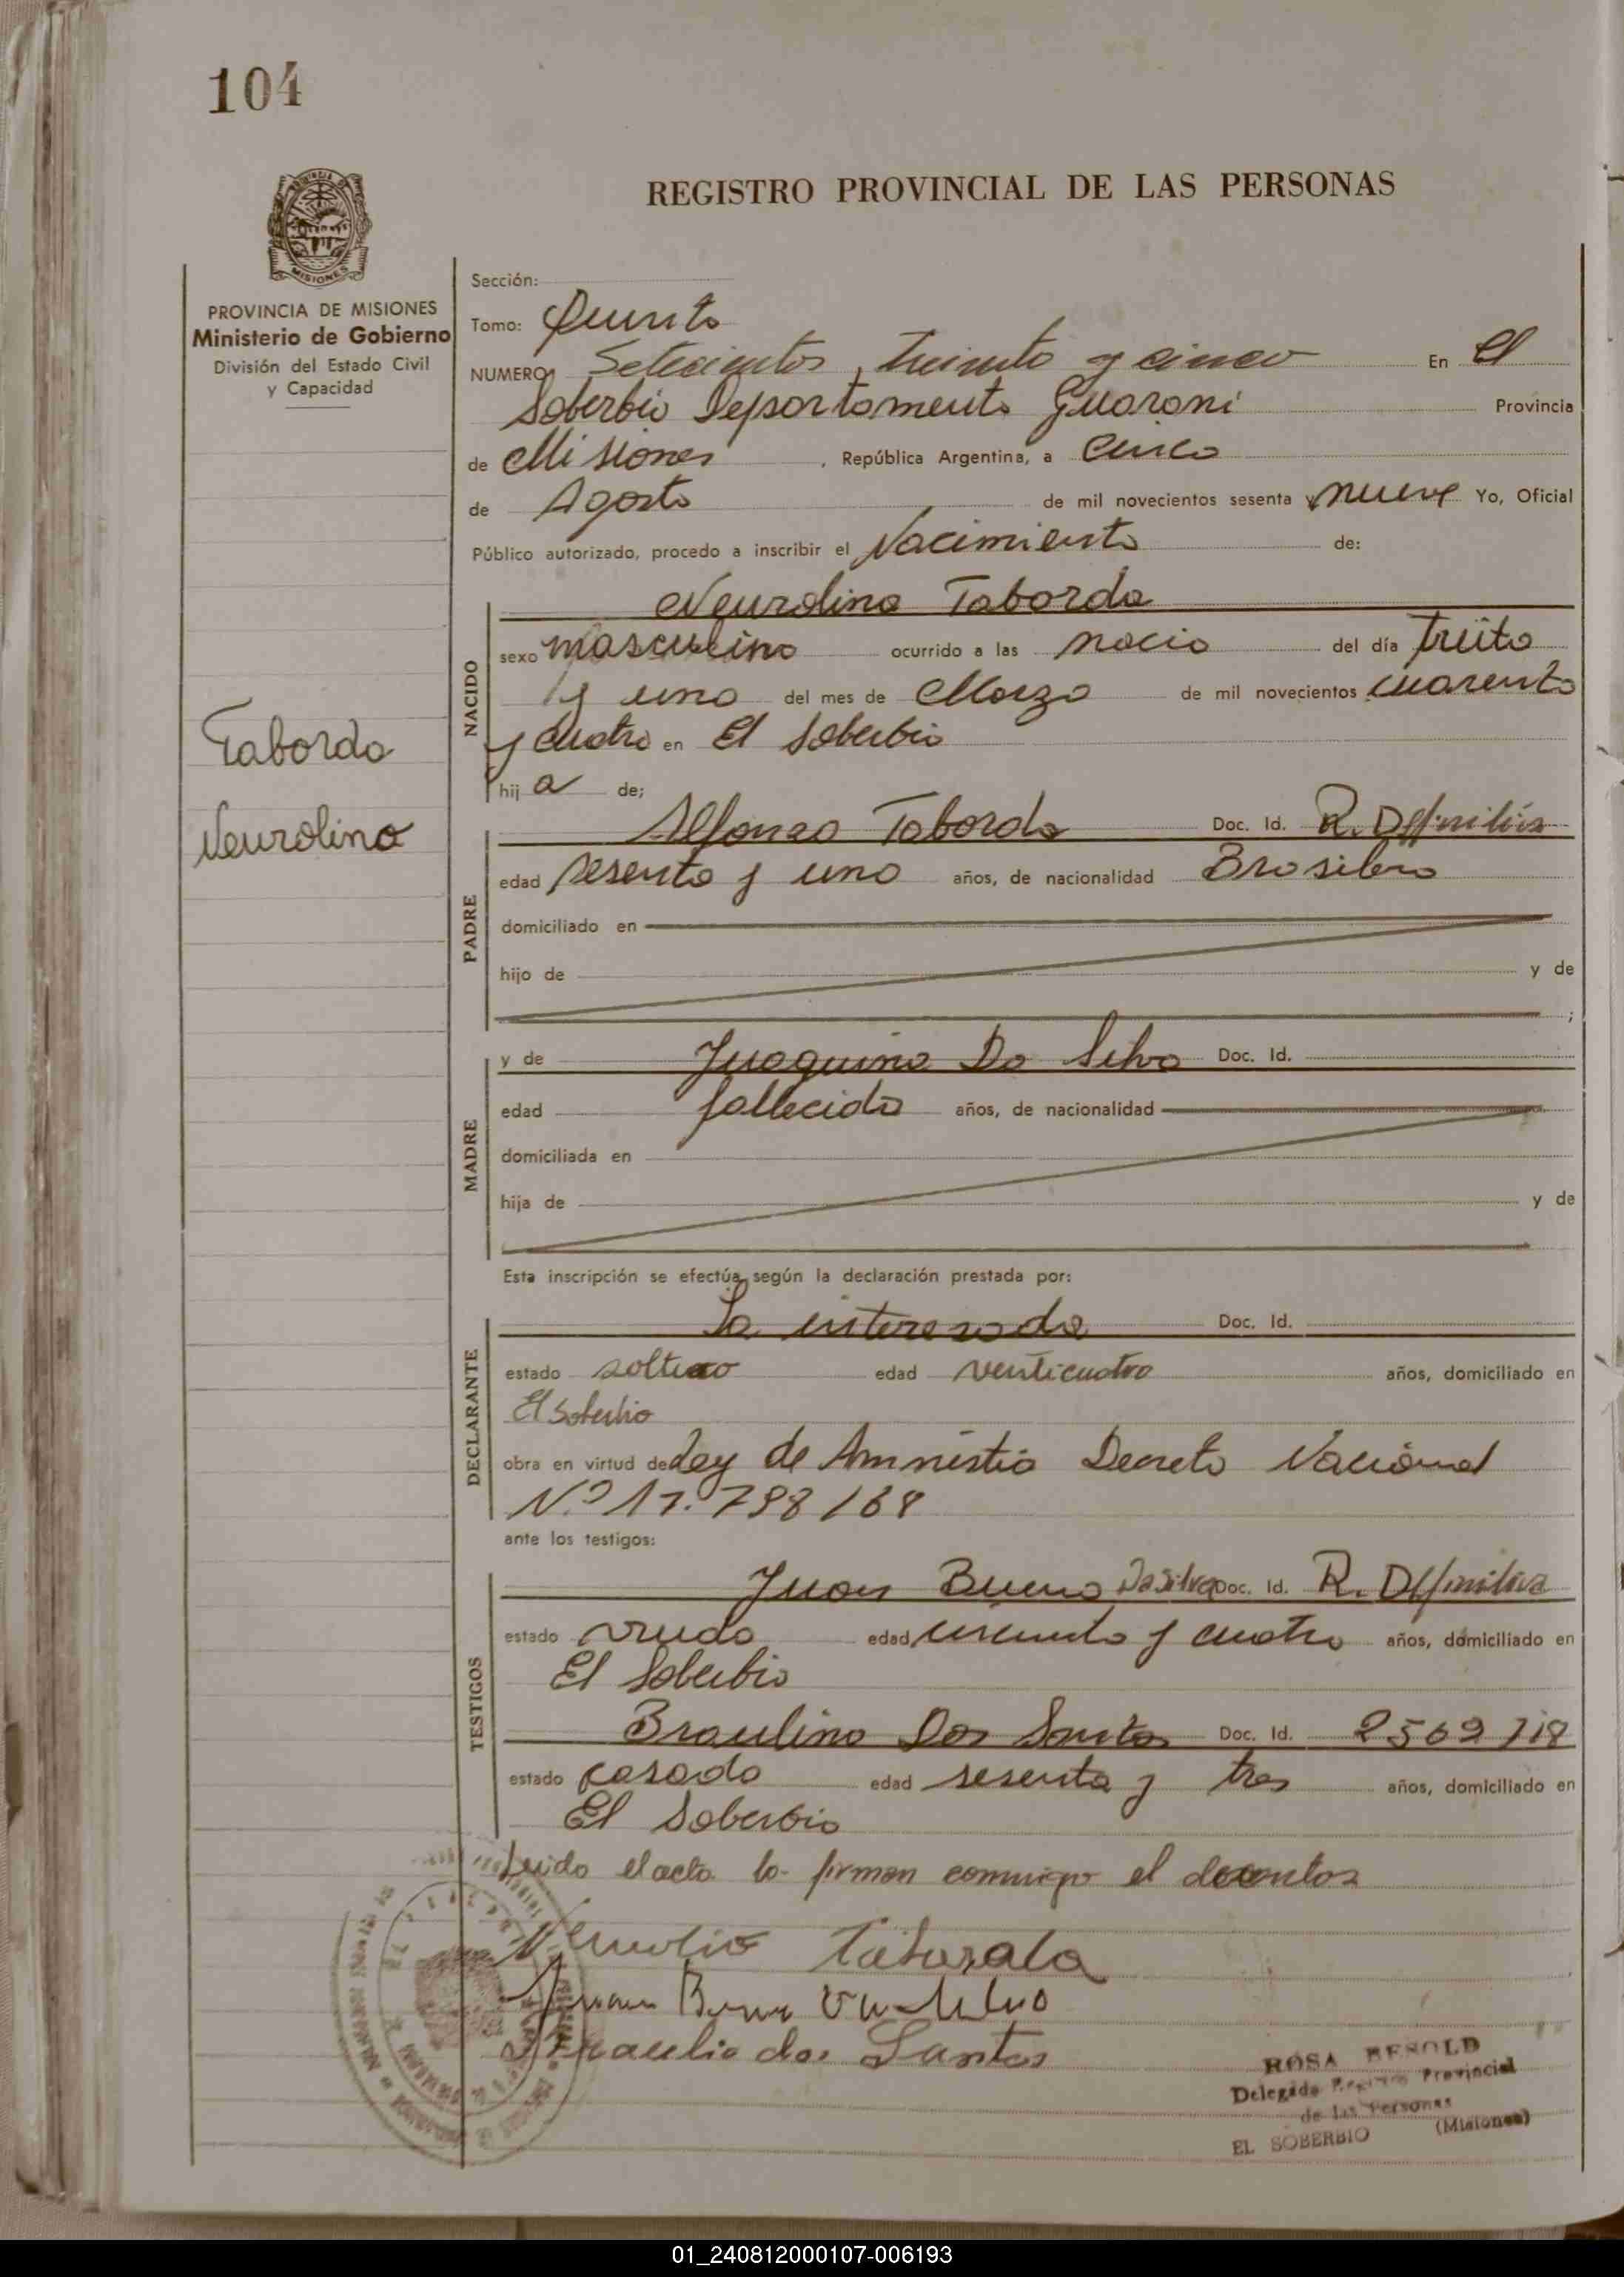 104
REGISTRO PROVINCIAL DE LAS PERSONAS
PROVINCIA DE MISIONES
Ministerio de Gobierno
División del Estado Civil
y Capacidad
Sección:
Tomo: Quinto
NUMERO Setecientos, treinta y cinco En El
Soberbio Departamento Guarani Provincia
de Misiones, República Argentina, a Cinco
de Agosto de mil novecientos sesenta y nueve Yo, Oficial
Público autorizado, procedo a inscribir el Nacimiento de:
Neurolina Taborda
NACIDO
sexo masculino ocurrido a las nacio del día treita
y uno del mes de Marzo de mil novecientos cuarenta
y cuatro en El Soberbio
hij a de;
Taborda
Neurolino
PADRE
Alfonso Taborda Doc. Id. R. Definitiva
edad sesenta y uno años, de nacionalidad Brasilero
domiciliado en
hijo de y de
;
MADRE
y de Juaquina Da Silva Doc. Id.
edad fallecida años, de nacionalidad
domiciliada en
hija de y de
Esta inscripción se efectúa según la declaración prestada por:
DECLARANTE
La interesada Doc. Id.
estado soltero edad venticuatro años, domiciliado en
El Soberbio
obra en virtud de Ley de Amnistia Decreto Nacional
Nº 17.798/68
ante los testigos:
TESTIGOS
Juan Bueno Da Silva Doc. Id. R. Definitiva
estado viudo edad y cuatro años, domiciliado en
El Soberbio
Braulino Dos Santos Doc. Id. 2569718
estado casado edad sesenta y tres años, domiciliado en
El Soberbio
Leido el acta lo firman conmigo el
Taborda
Juan
Braulio dos Santos
ROSA BESOLD
Delegada Registro Provincial
de las Personas
EL SOBERBIO (Misiones)
01_240812000107-006193